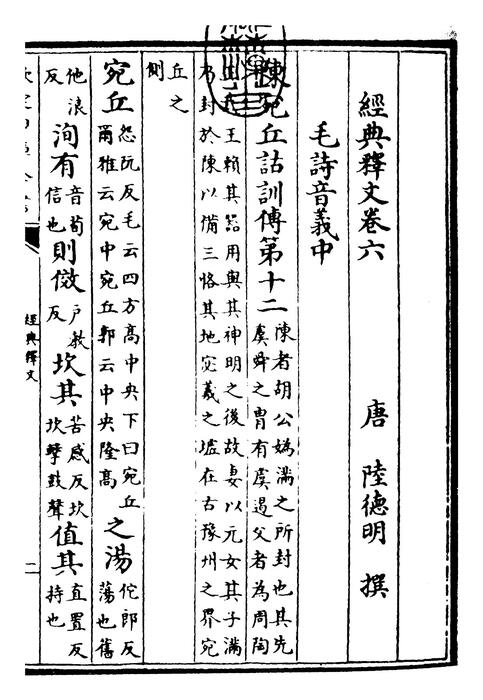 經典釋文卷六
唐 陸德明 撰
毛詩音義中
陳宛丘詁訓傳第十二陳者胡公媯滿之所封也其先
虞舜之胄有虞遏父者為周陶
正武王賴其器用與其神明之後故妻以元女其子滿
乃封於陳以備三恪其地宓羲之墟在古豫州之界宛
丘之
側
宛丘怨阮反毛云四方高中央下曰宛丘
爾雅云宛中宛丘郭云中央隆高之湯佗郎反
蕩也舊
他浪
反洵有音荀
信也則傚户教
反坎其苦感反坎
坎擊鼓聲值其直置反
持也
經典釋文
二